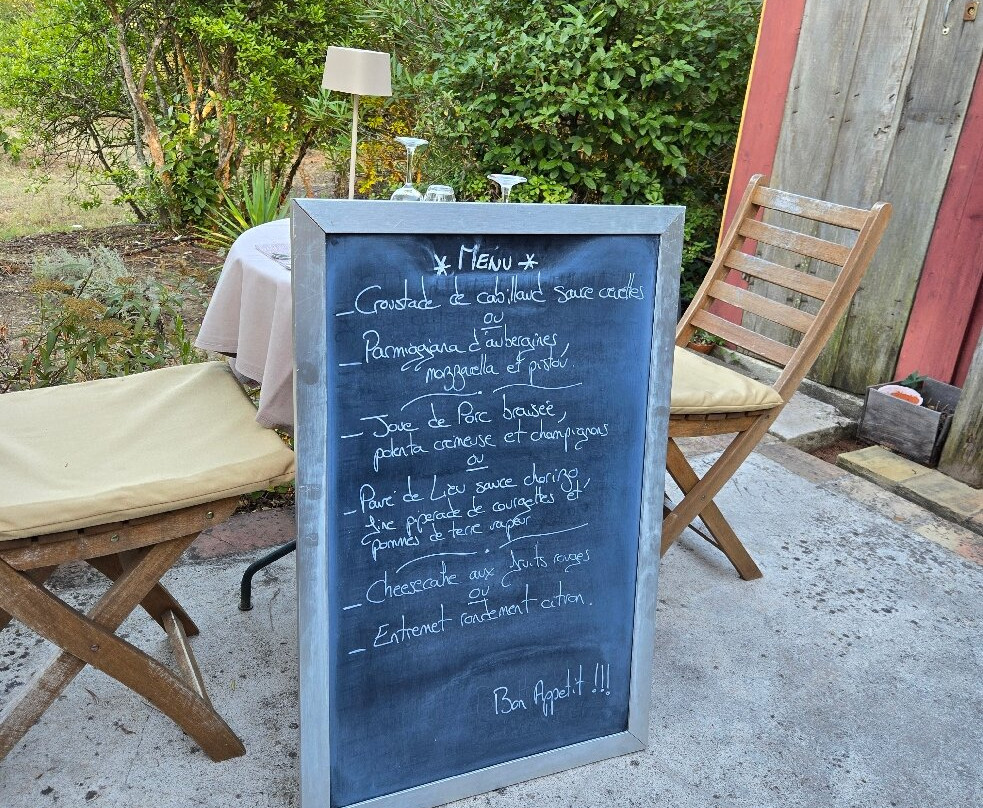 * MENU *
- Croustade de cabillaud sauce crevettes
ou
- Parmiggiana d'aubergines,
mozzarella et pistou.
- Joue de Porc braisée,
polenta crémeuse et champignons
ou
- Pavé de Lieu sauce chorizo,
fine piperade de courgettes et,
pommes de terre vapeur
- Cheesecake aux fruits rouges
ou
- Entremet rondement citron.
Bon Appetit !!!